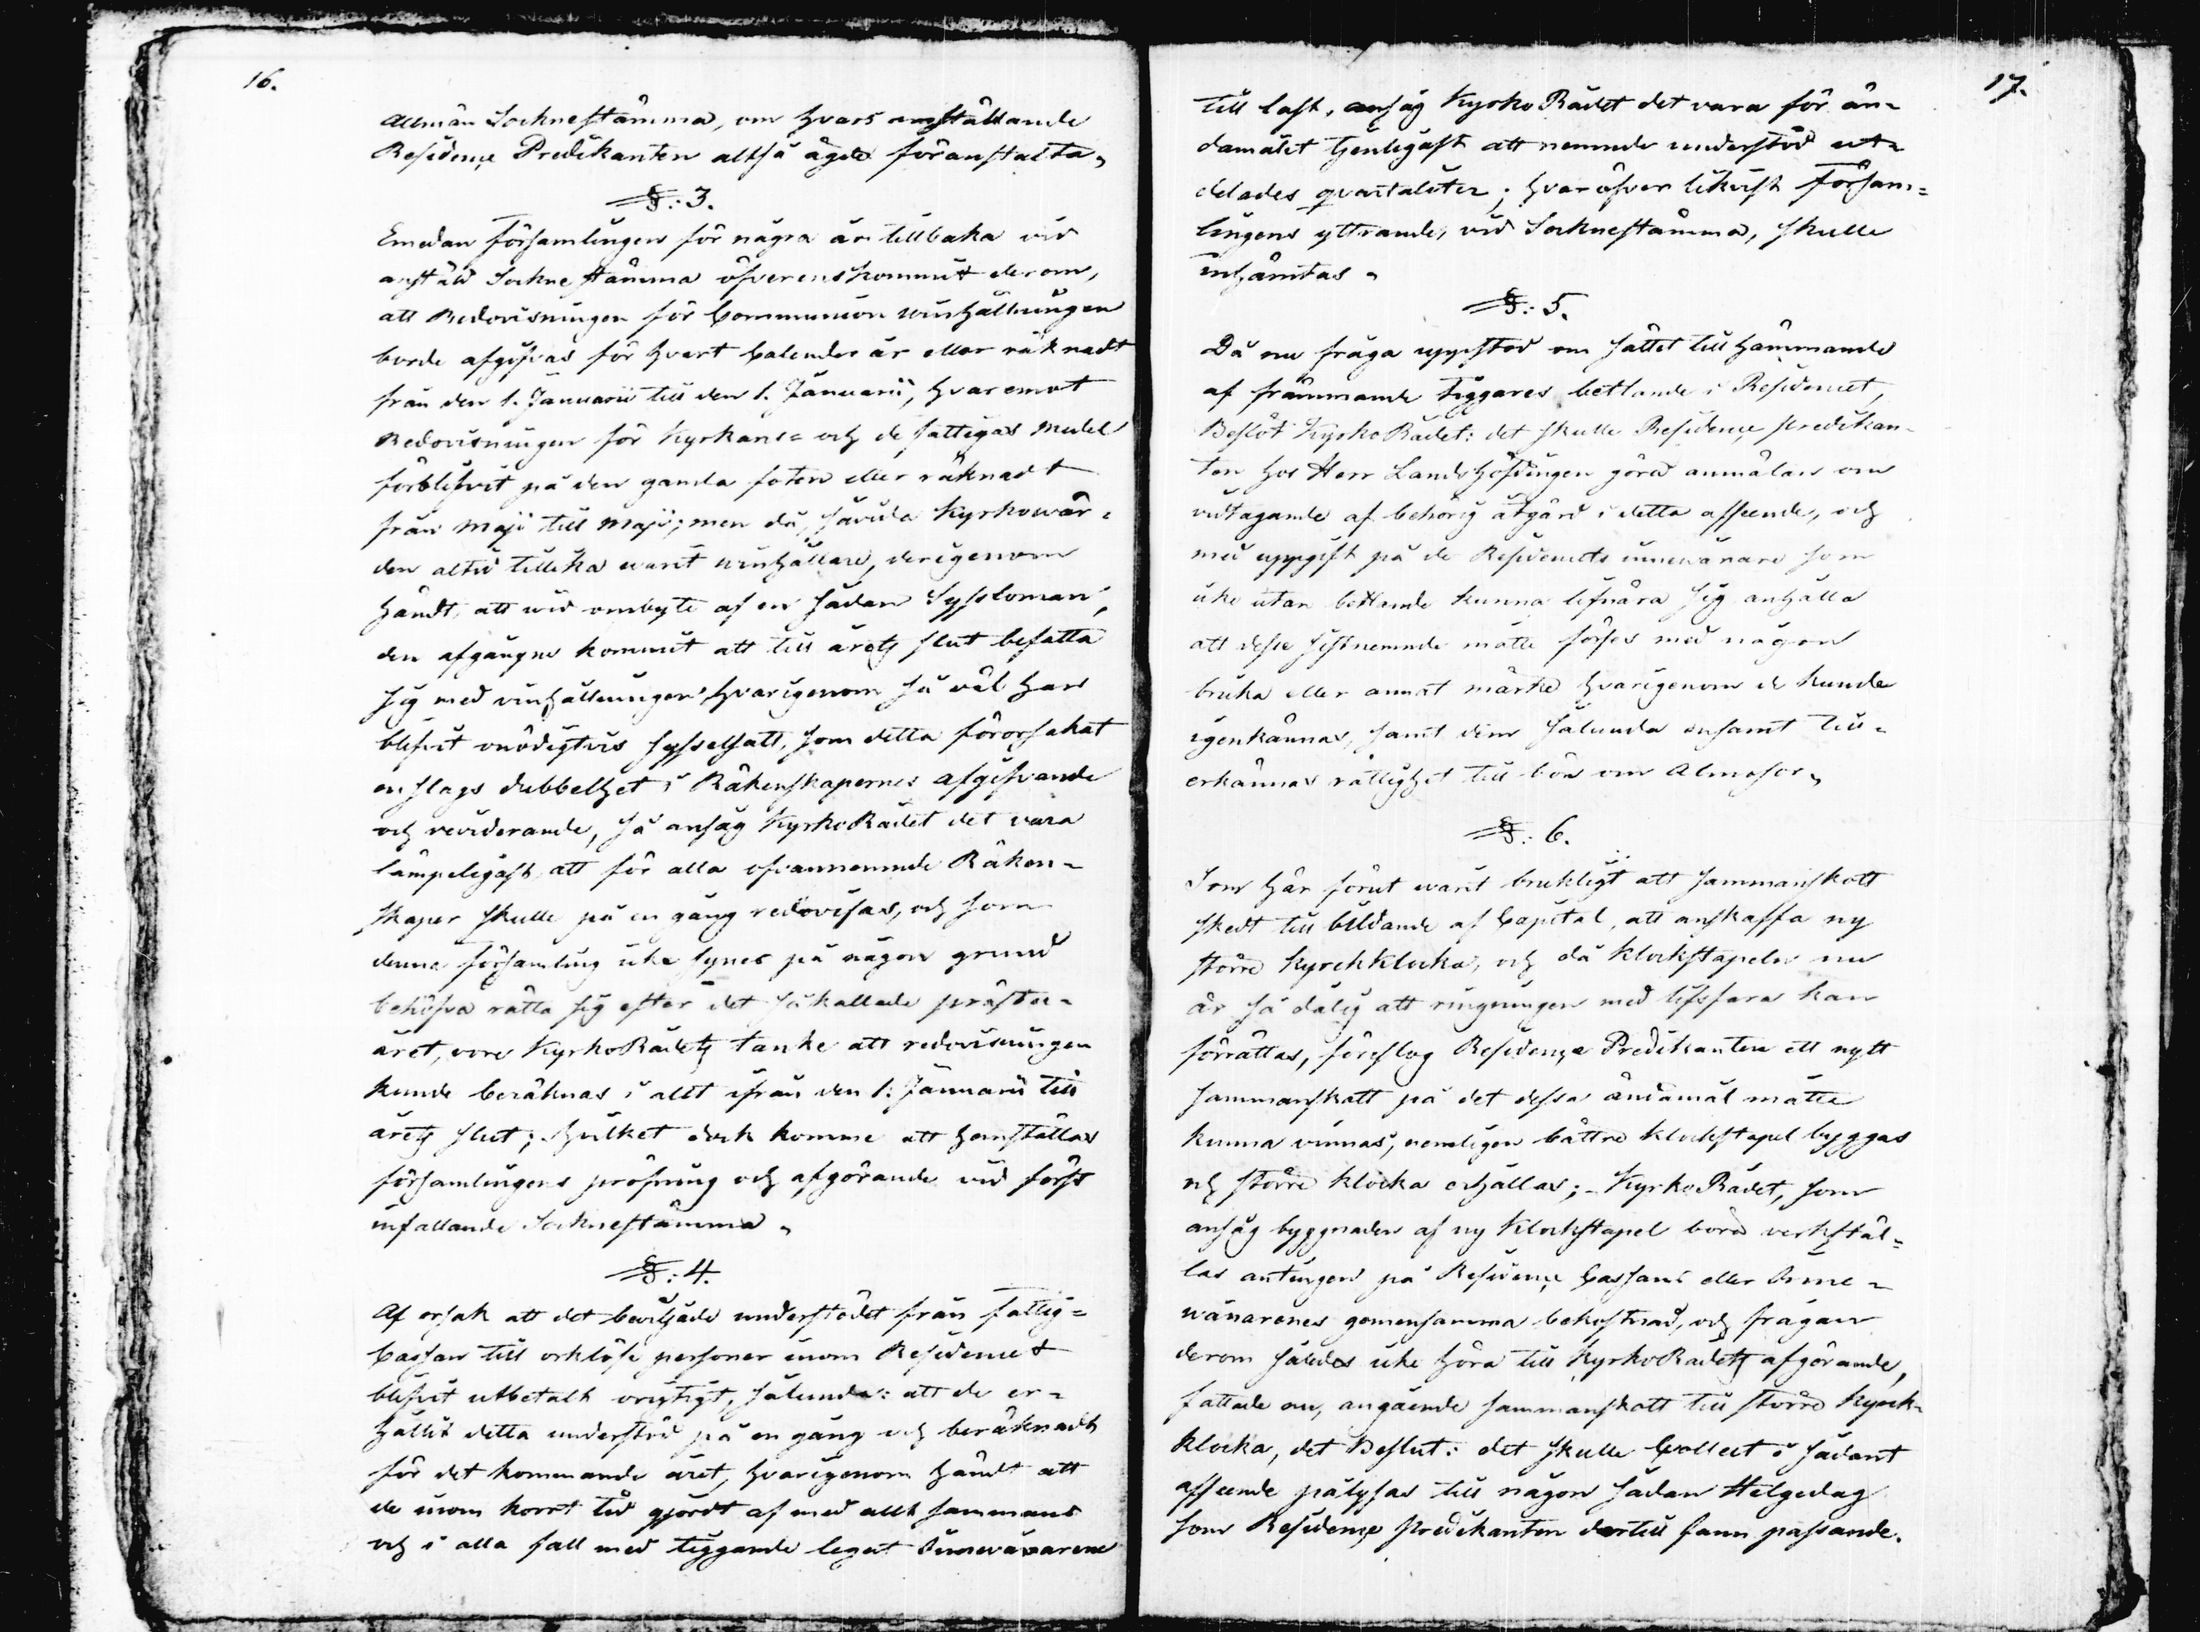 16.
Allmän Sockne stämma, om hvars anställande
Residence Predikanten altså ägde föranstalta.
§: 3.
Emedan Församlingen för några år tillbaka vid
anstäld Sockne stämma öfverenskommit derom,
att Redovisningen för Communion vinhållningen
borde afgifvas för hvart Calender år eller räknadt
från den 1. Januarii till den 1. Januarii, hvaremot
Redovisningen för Kyrkans= och de fattigas Medel
förblifvit på den gamla foten eller räknadt
från Maji till Maji; men då, såvida Kyrkowär=
den altid tillika varit vinhållare, derigenom
händt, att wid ombyte af en sådan Sysloman,
den afgångne kommit att till årets slut befatta
sig med vinhållningen, hvarigenom så väl han
blifvit onödigtvis sysselsatt, som detta förorsakat
en slags dubbelhet i Räkenskapernes afgifvande
och reviderande, så ansåg KyrkoRådet det vara
lämpeligast, att för alla ofvannemnde Räken=
skaper skulle på en gång redovisas, och som
denna församling icke synes på någon grund
behöfva rätta sig efter det så kallade präste=
året, vore KyrkoRådets tanke att redovisningen
kunde beräknas i allt ifrån den 1. Januarii till
årets slut; hvilket dock komme att hemställas
församlingens pröfning och afgörande vid först
infallande Sockne stämma.
§: 4.
Af orsak att det beviljade understödet från Fattig=
Cassan till orklöse personer inom Residencet
blifvit utbetalt origtigt, sålunda: att de er=
hållit detta understöd på en gång och beräknadt
för det kommande året, hvarigenom händt att
de inom kort tid gjordt af med allt sammans
och i alla fall med tiggande legat Innevånarene
17.
till last, ansåg KyrkoRådet det vara för än=
damålet tjenligast att nemnde understöd ut=
delades qvartaliter; hvaröfver likvist Försam=
lingens yttrande, vid Sockne stämma, skulle
inhämtas.
§: 5.
Då nu fråga uppstod om sättet till hämmande
af främmande tiggares bettlande i Residencet,
Beslöt KyrkoRådet: det skulle Residence Predikan=
ten hos Herr Landshöfdingen göra anmälan om
vidtagande af behörig åtgärd i detta afseende, och
med uppgift på de Residencets innewånare som
icke utan bettlande kunna lifnära sig anhålla
att desse sistnemnde måtte förses med någon
bricka eller annat märke hvarigenom de kunde
igenkännas, samt dem sålunda ensamt till=
erkännas rättighet till bön om Almosor.
§: 6.
Som här förut varit brukligt att sammanskott
skedt till bildande af Capital, att anskaffa ny
större Kyrckklocka, och då klockstapeln nu
är så dålig att ringningen med lifsfara kan
förrättas, föreslog Residence Predikanten ett nytt
sammanskatt på det dessa ändamål måtte
kunna vinnas, nemligen bättre klockstapel byggas
och större klocka erhållas; - KyrkoRådet, som
ansåg byggnaden af ny Klockstapel böra verkstäl=
las antingen på Residence Cassans eller Inne=
wånarenes gemensamma bekostnad, och frågan
derom således icke höra till KyrkoRådets afgörande,
fattade nu, angående sammanskott till större Kyrck=
klocka, det Beslut: det skulle Collect i sådant
afseende pålysas till någon sådan Helgedag
som Residence Predikanten dertill fann passande.